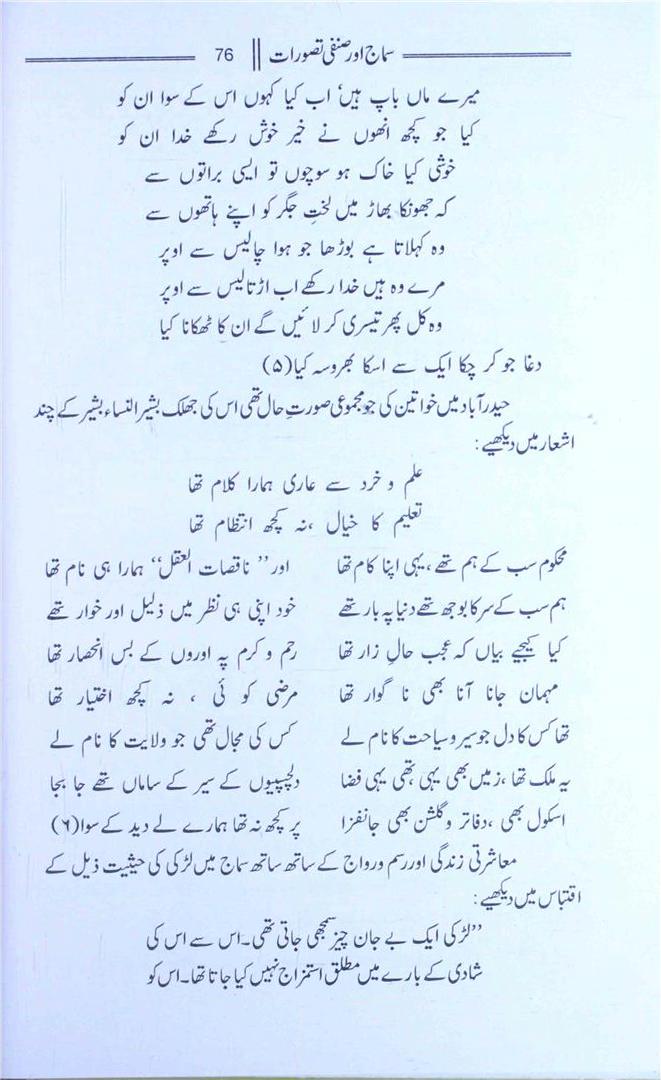 سماج اور صنفی تصورات || 76
میرے ماں باپ ہیں، اب کیا کہوں اس کے سوا ان کو
کیا جو کچھ انھوں نے خیر خوش رکھے خدا ان کو
خوشی کیا خاک ہو سوچوں تو ایسی براتوں سے
کہ جھونکا بھاڑ میں لختِ جگر کو اپنے ہاتھوں سے
وہ کہلاتا ہے بوڑھا جو ہوا چالیس سے اوپر
مرے وہ ہیں خدا رکھے اب اڑتالیس سے اوپر
وہ کل پھر تیسری کر لائیں گے ان کا ٹھکانا کیا
دغا جو کر چکا ایک سے اسکا بھروسہ کیا (۵)
حیدرآباد میں خواتین کی جو مجموعی صورتِ حال تھی اس کی جھلک بشیر النساء بشیر کے چند
اشعار میں دیکھیے:
علم و خرد سے عاری ہمارا کلام تھا
تعلیم کا خیال ،نہ کچھ انتظام تھا
محکوم سب کے ہم تھے، یہی اپنا کام تھا اور ”ناقصات العقل“ ہمارا ہی نام تھا
ہم سب کے سر کا بوجھ تھے دنیا پہ بار تھے خود اپنی ہی نظر میں ذلیل اور خوار تھے
کیا کیجیے بیاں کہ عجب حالِ زار تھا رحم و کرم پہ اوروں کے بس انحصار تھا
مہمان جانا آنا بھی نا گوار تھا مرضی کو ئی ، نہ کچھ اختیار تھا
تھا کس کا دل جو سیر و سیاحت کا نام لے کس کی مجال تھی جو ولایت کا نام لے
یہ ملک تھا ،زمیں بھی یہی تھی یہی فضا دلچسپیوں کے سیر کے ساماں تھے جا بجا
اسکول بھی ،دفاتر و گلشن بھی جانفزا پر کچھ نہ تھا ہمارے لے دید کے سوا (۶)
معاشرتی زندگی اور رسم و رواج کے ساتھ ساتھ سماج میں لڑکی کی حیثیت ذیل کے
اقتباس میں دیکھیے:
”لڑکی ایک بے جان چیز سمجھی جاتی تھی۔ اس سے اس کی
شادی کے بارے میں مطلق استمزاج نہیں کیا جاتا تھا۔ اس کو